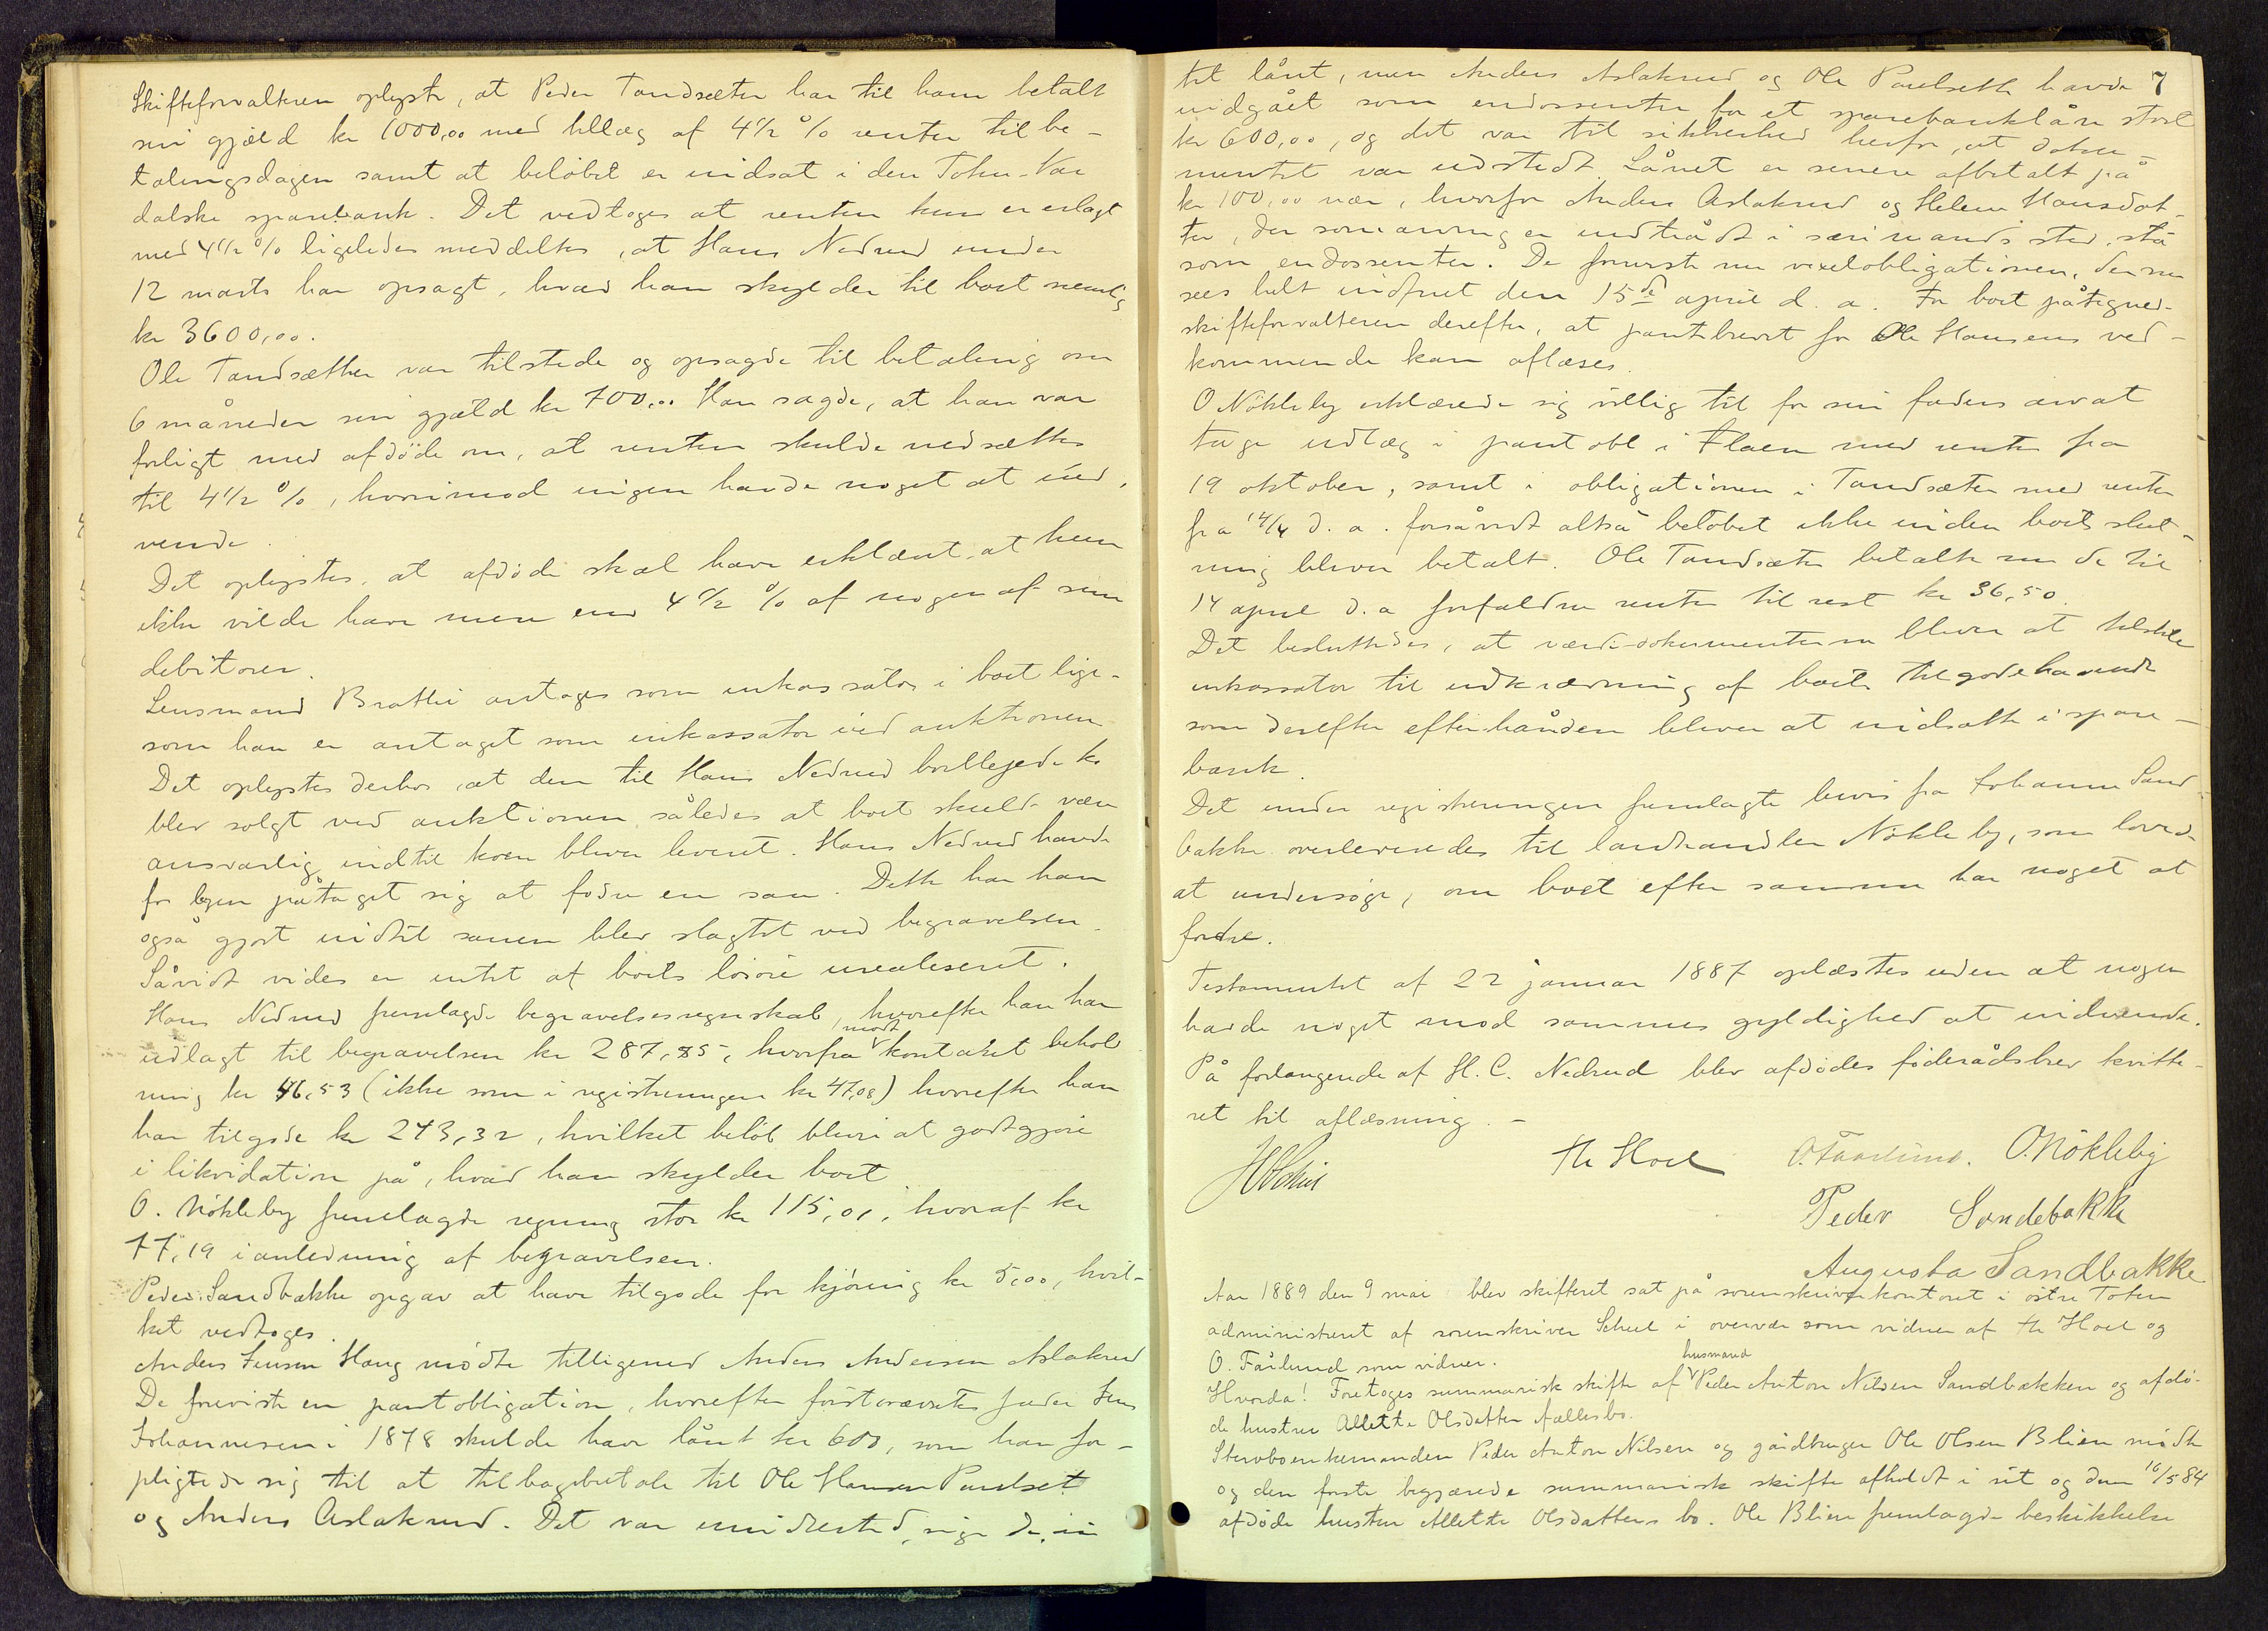 Skifteforvalteren oplyste, at Peder Tandsæter har til ham betalt
sin gjæld kr 1000,00 med tillæg af 4½ % renter til be-
talingsdagen samt at beløbet er indsat i den Toten-Var
dalske sparebank. Det vedtoges at renten kun er erlagt
med 4½ % ligeledes meddeltes, at Hans Nedrud under
12 marts har opsagt, hvad han skylder til boet nemlig
kr 3600,00.
Ole Tandsæther var tilstede og opsagde til betaling om
6 måneder sin gjæld kr 700,00 Han sagde, at han var
forligt med afdøde om, at renten skulde nedsættes
til 4½ %, hvorimod ingen havde noget at ind-
vende.
Det oplystes, at afdøde skal have erklæret at hun
ikke vilde have mere end 4½ % af nogen af sine
debitorer.
Lensmand Brattli antages som inkassator i boet lige-
som han er antaget som inkassator ved auktionen
Det oplystes derhos at den til Hans Nedrud bortlejede ko
blev solgt ved auktionen således at boet skulde være
ansvarlig indtil koen bliver leveret. Hans Nedrud havde
for lejen påtaget sig at fodre en sau. Dette har han
også gjort indtil sauen blev slagtet ved begravelsen.
Såvidt vides er intet af boets løsøre urealiseret.
Hans Nedrud fremlagde begravelsesregnskab, hvorefter han har
udlagt til begravelsen kr 287,85, hvorfra modt kontaret behold
ning kr 46,53 (ikke som i registreringen kr 47,08) hvorefter han
har tilgode kr 243,32, hvilket beløb bliver at godtgjøre
i likvidation på, hvad han skylder boet
O. Nökleby fremlagde regning stor kr 115,01, hvoraf kr
77,19 i anledning af begravelsen.
Peder Sandbakke opgav at have tilgode for kjøring kr 5,00, hvil-
ket vedtoges.
Anders Jensen Haug mødte tilligemed Anders Andersen Aslakrud
De foreviste en pantobligation, hvorefter førstnævntes fader Jens
Johannesen i 1878 skulde have lånt kr 600, som han for-
pligtede sig til at tilbagebetale til Ole Hansen Paulset
og Anders Aslakrud. Det var imidlertid, sige de, in
7
tet lånt, men Anders Aslakrud og Ole Paulseth havde
indgået som endossenter for et sparebanklån stort
kr 600,00, og det var til sikkerhed herfor, at doku-
mentet var udstedt. Lånet er senere afbetalt på
kr 100,00 nær, hvorfor Anders Aslakrud og Helene Hansdat-
ter, der som arving er indtrådt i sin mands sted, stå
som endossenter. De foreviste nu vexelobligationen, der nu
sees helt indfriet den 15de april d. a. For boet påtegned-
skifteforvalteren derefter, at pantbrevet for Ole Hansens ved-
kommende kan aflæses.
O Nökleby erklærede sig villig til for sin faders arv at
tage udlæg i pantobl i Flaen med renter fra
19 oktober, samt i obligationen i Tandsæter med renter
fra 14/4 d. a. forsåvidt altså beløbet ikke inden boets slut-
ning bliver betalt. Ole Tandsæter betalte nu de til
14 april d. a forfaldne renter til rest kr 36,50.
Det besluttedes, at værdi-dokumenterne bliver at tilstille
inkassator til indkrævning af boets tilgodehavende
som derefter efterhånden bliver at indsætte i spare-
bank.
Det under registreringen fremlagte bevis fra Johanne Sand-
bakke overleveredes til landhandler Nökleby, som lovede
at undersøge, om boet efter samme har noget at
fordre.
Testamentet af 22 januar 1887 oplæstes uden at nogen
havde noget mod sammes gyldighed at indvende.
På forlangende af H. C. Nedrud blev afdødes føderådsbrev kvitte-
ret til aflæsning. –
Th Hoel O. Faarlund. O. Nökleby
Peder Sandebakke
Augusta Sandbakke
Aar 1889 den 9 mai blev skifteret sat på sorenskriverkontoret i østre Toten
administreret af sorenskriver Scheel i overvær som vidner af Th Hoel og
O. Fårlund som vidner.
Hvorda! Foretoges summarisk skifte af husmand Peder Anton Nilsen Sandbakken og afdø-
de hustru Allette Olsdatter fællesbo.
Stervboenkemanden Peder Anton Nilsen og gårdbruger Ole Olsen Blien mødte
og den første begjærede summarisk skifte afholdt i sit og den 16/5 84
afdøde hustru Allette Olsdatters bo. Ole Blien fremlagde beskikkelse